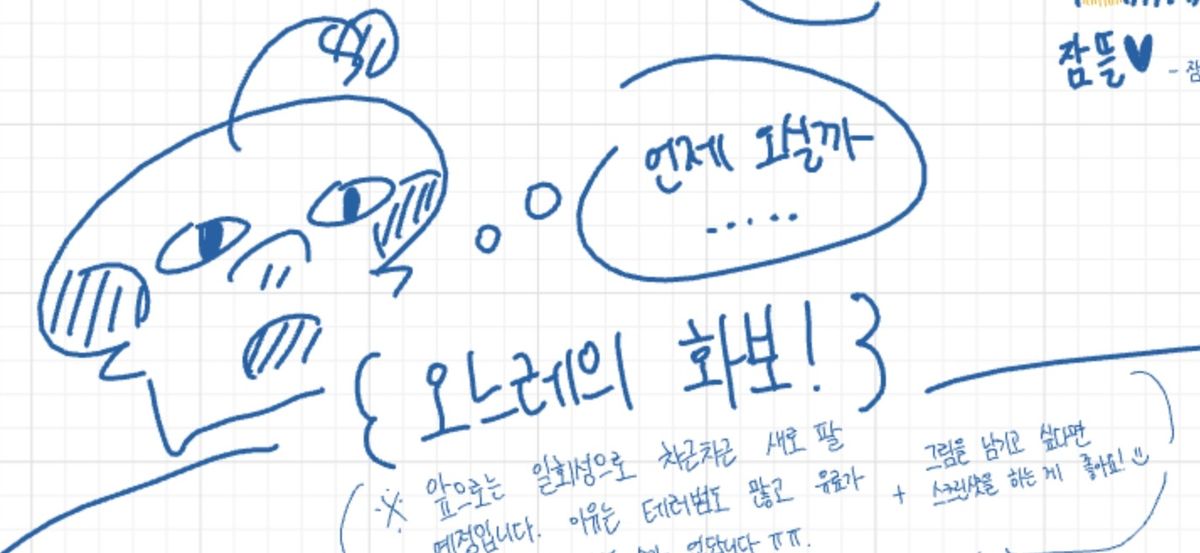 잠뜰♥
언제 오실까
.....
{오느레의 화보!}
※ 앞으로는 일회성으로 차근차근 새로 팔
예정입니다. 이유는 테러범도 많고 유료가
+ 그림을 남기고 싶다면
스크린샷을 하는 게 좋아요!
ㅠㅠ.